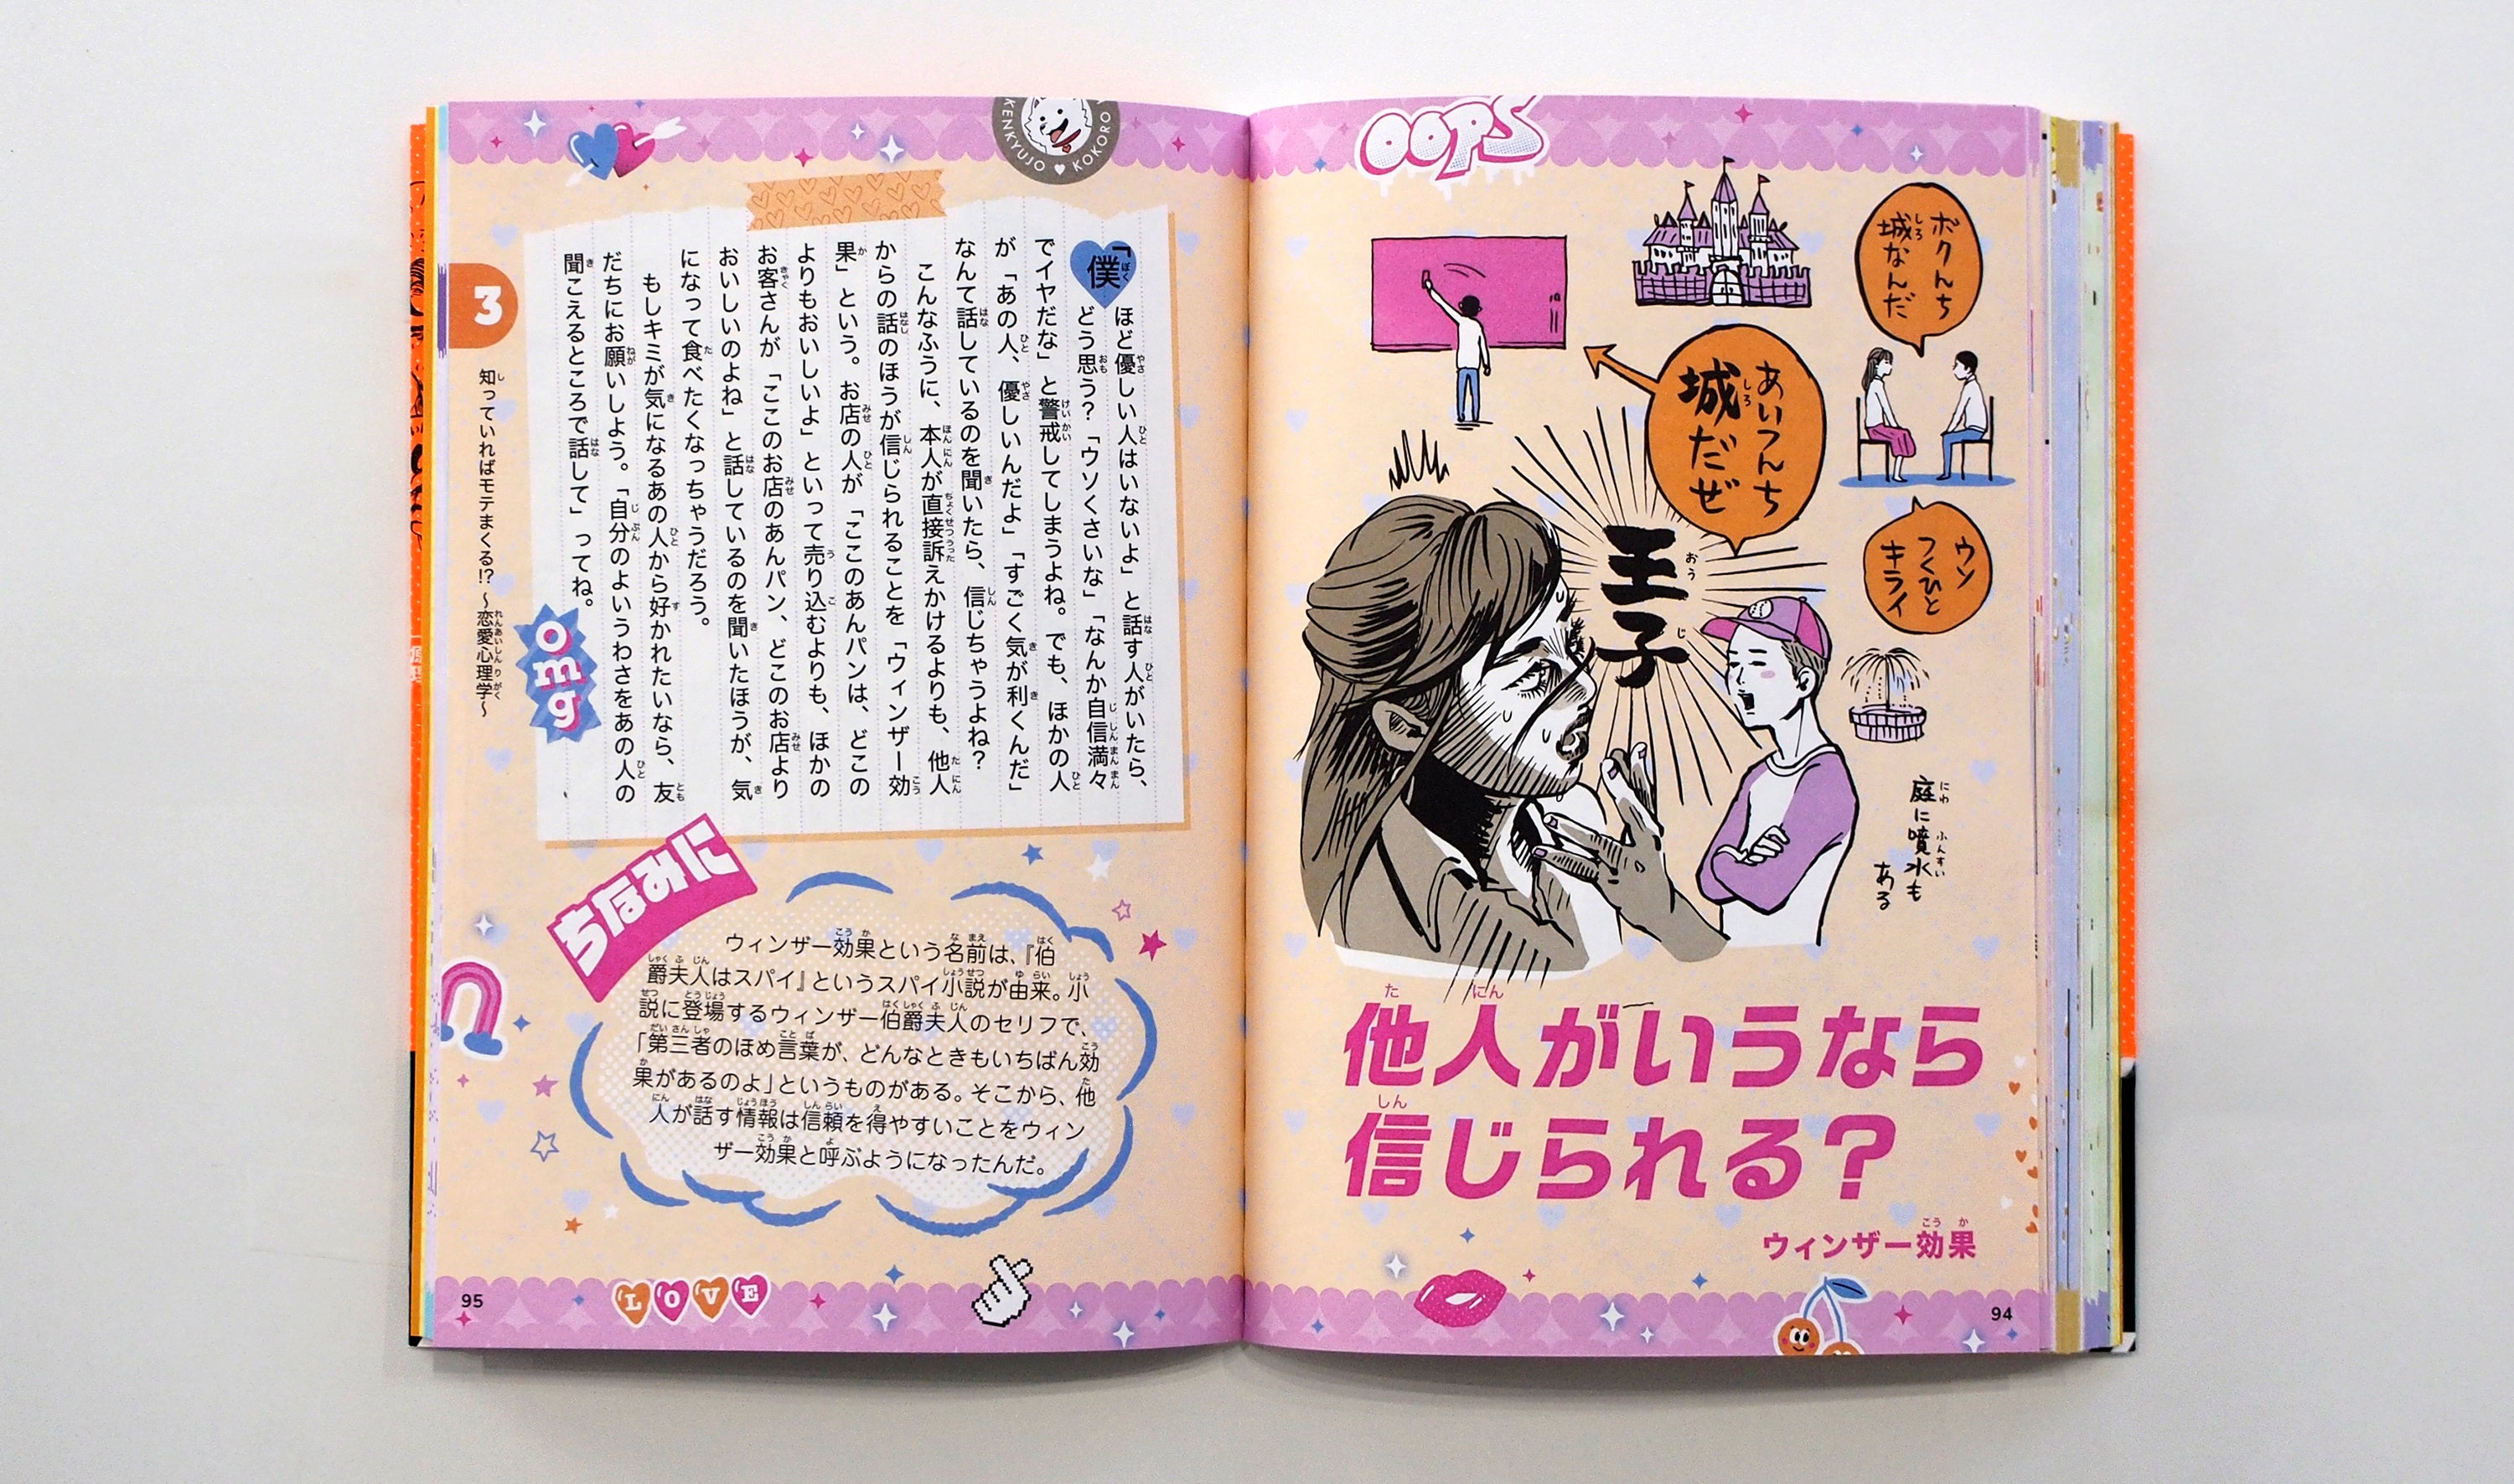 OOPS
ボクんち
城なんだ
ウソ
つくひと
キライ
あいつんち
城だぜ
王子
庭に噴水も
ある
他人がいうなら
信じられる?
ウィンザー効果
94
KENKYUJO ♥ KOKORO
「僕ほど優しい人はいないよ」と話す人がいたら、
どう思う?「ウソくさいな」「なんか自信満々
でイヤだな」と警戒してしまうよね。でも、ほかの人
が「あの人、優しいんだよ」「すごく気が利くんだ」
なんて話しているのを聞いたら、信じちゃうよね?
こんなふうに、本人が直接訴えかけるよりも、他人
からの話のほうが信じられることを「ウィンザー効
果」という。お店の人が「ここのあんパンは、どこの
よりもおいしいよ」といって売り込むよりも、ほかの
お客さんが「ここのお店のあんパン、どこのお店より
おいしいのよね」と話しているのを聞いたほうが、気
になって食べたくなっちゃうだろう。
もしキミが気になるあの人から好かれたいなら、友
だちにお願いしよう。「自分のよいうわさをあの人の
聞こえるところで話して」ってね。
omg
3
知っていればモテまくる!? ～恋愛心理学～
ちなみに
ウィンザー効果という名前は、『伯
爵夫人はスパイ』というスパイ小説が由来。小
説に登場するウィンザー伯爵夫人のセリフで、
「第三者のほめ言葉が、どんなときもいちばん効
果があるのよ」というものがある。そこから、他
人が話す情報は信頼を得やすいことをウィン
ザー効果と呼ぶようになったんだ。
LOVE
95